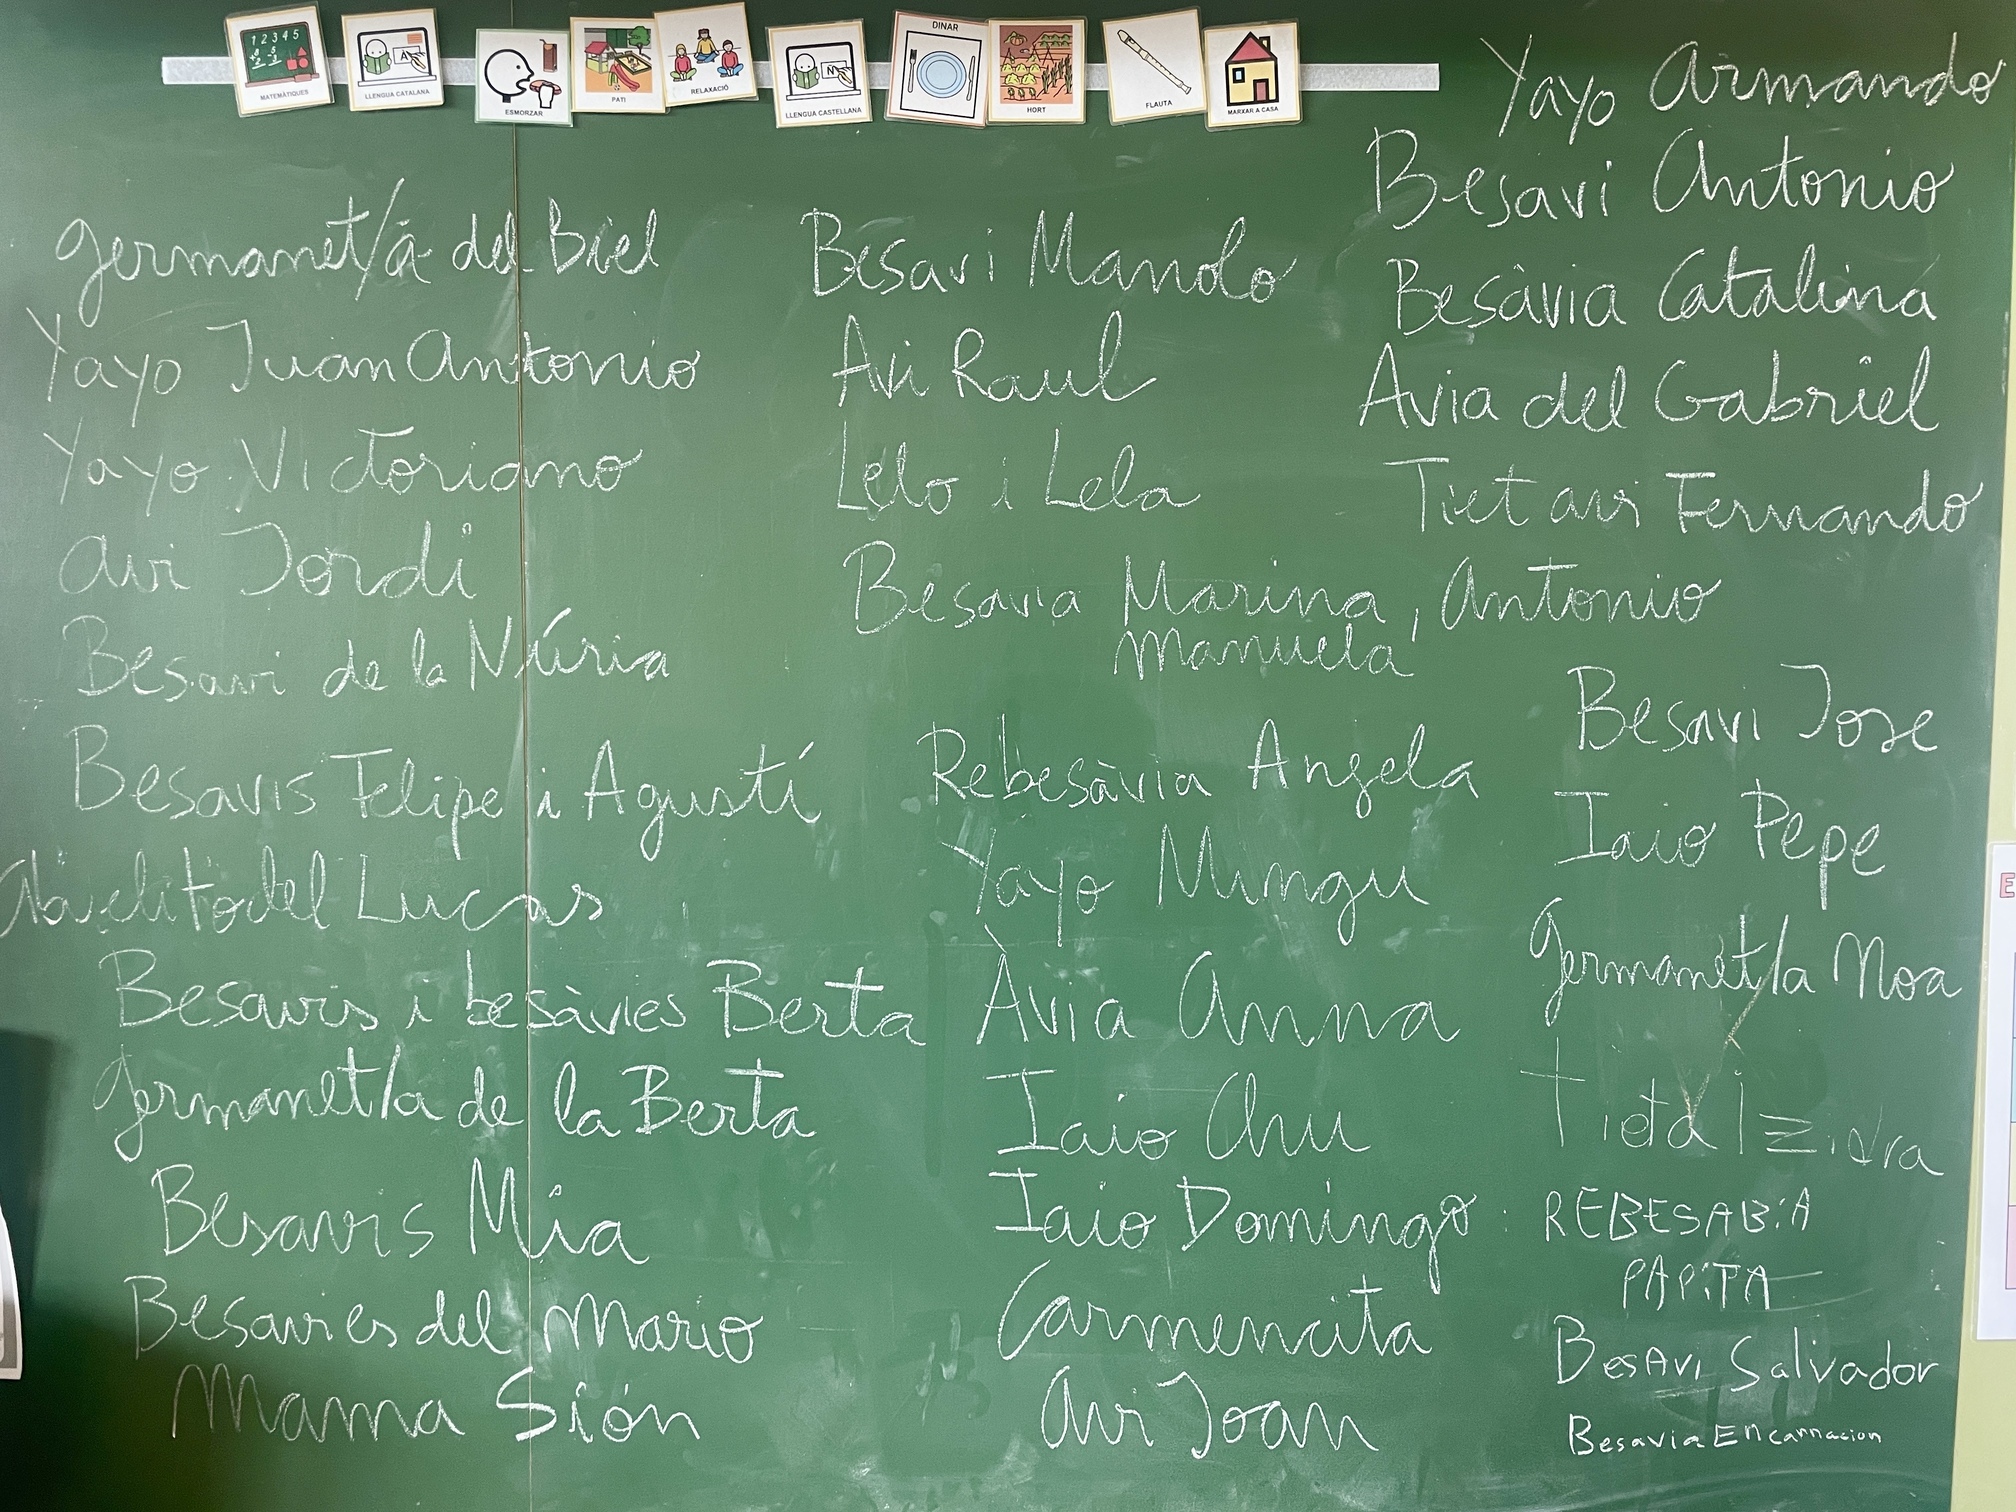 MATEMÀTIQUES
LLENGUA CATALANA
ESMORZAR
PATI
RELAXACIÓ
LLENGUA CASTELLANA
DINAR
HORT
FLAUTA
MARXAR A CASA
germanet/a del Biel
Yayo Juan Antonio
Yayo Victoriano
Avi Jordi
Besavi de la Núria
Besavis Felipe i Agustí
Abuelito del Lucas
Besavis i besàvies Berta
germanet/a de la Berta
Besavis Mia
Besavies del Mario
Mama Sión
Besavi Manolo
Avi Raul
Lelo i Lela
Besavia Marina, Antonio
Manuela
Rebesàvia Angela
Yayo Mingu
Àvia Anna
Iaio Chu
Iaio Domingo
Carmencita
Avi Joan
Yayo Armando
Besavi Antonio
Besàvia Catalina
Avia del Gabriel
Tiet avi Fernando
Besavi Jose
Iaio Pepe
germanet/a Noa
Tieta
REBESABIA
PAPITA
BesAvi Salvador
Besavia Encarnacion